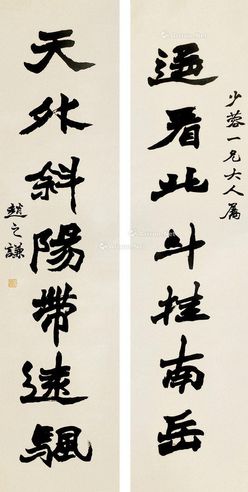 少蓉一兄大人属
遥看北斗挂南岳
天外斜陽帶遠颿
趙之謙